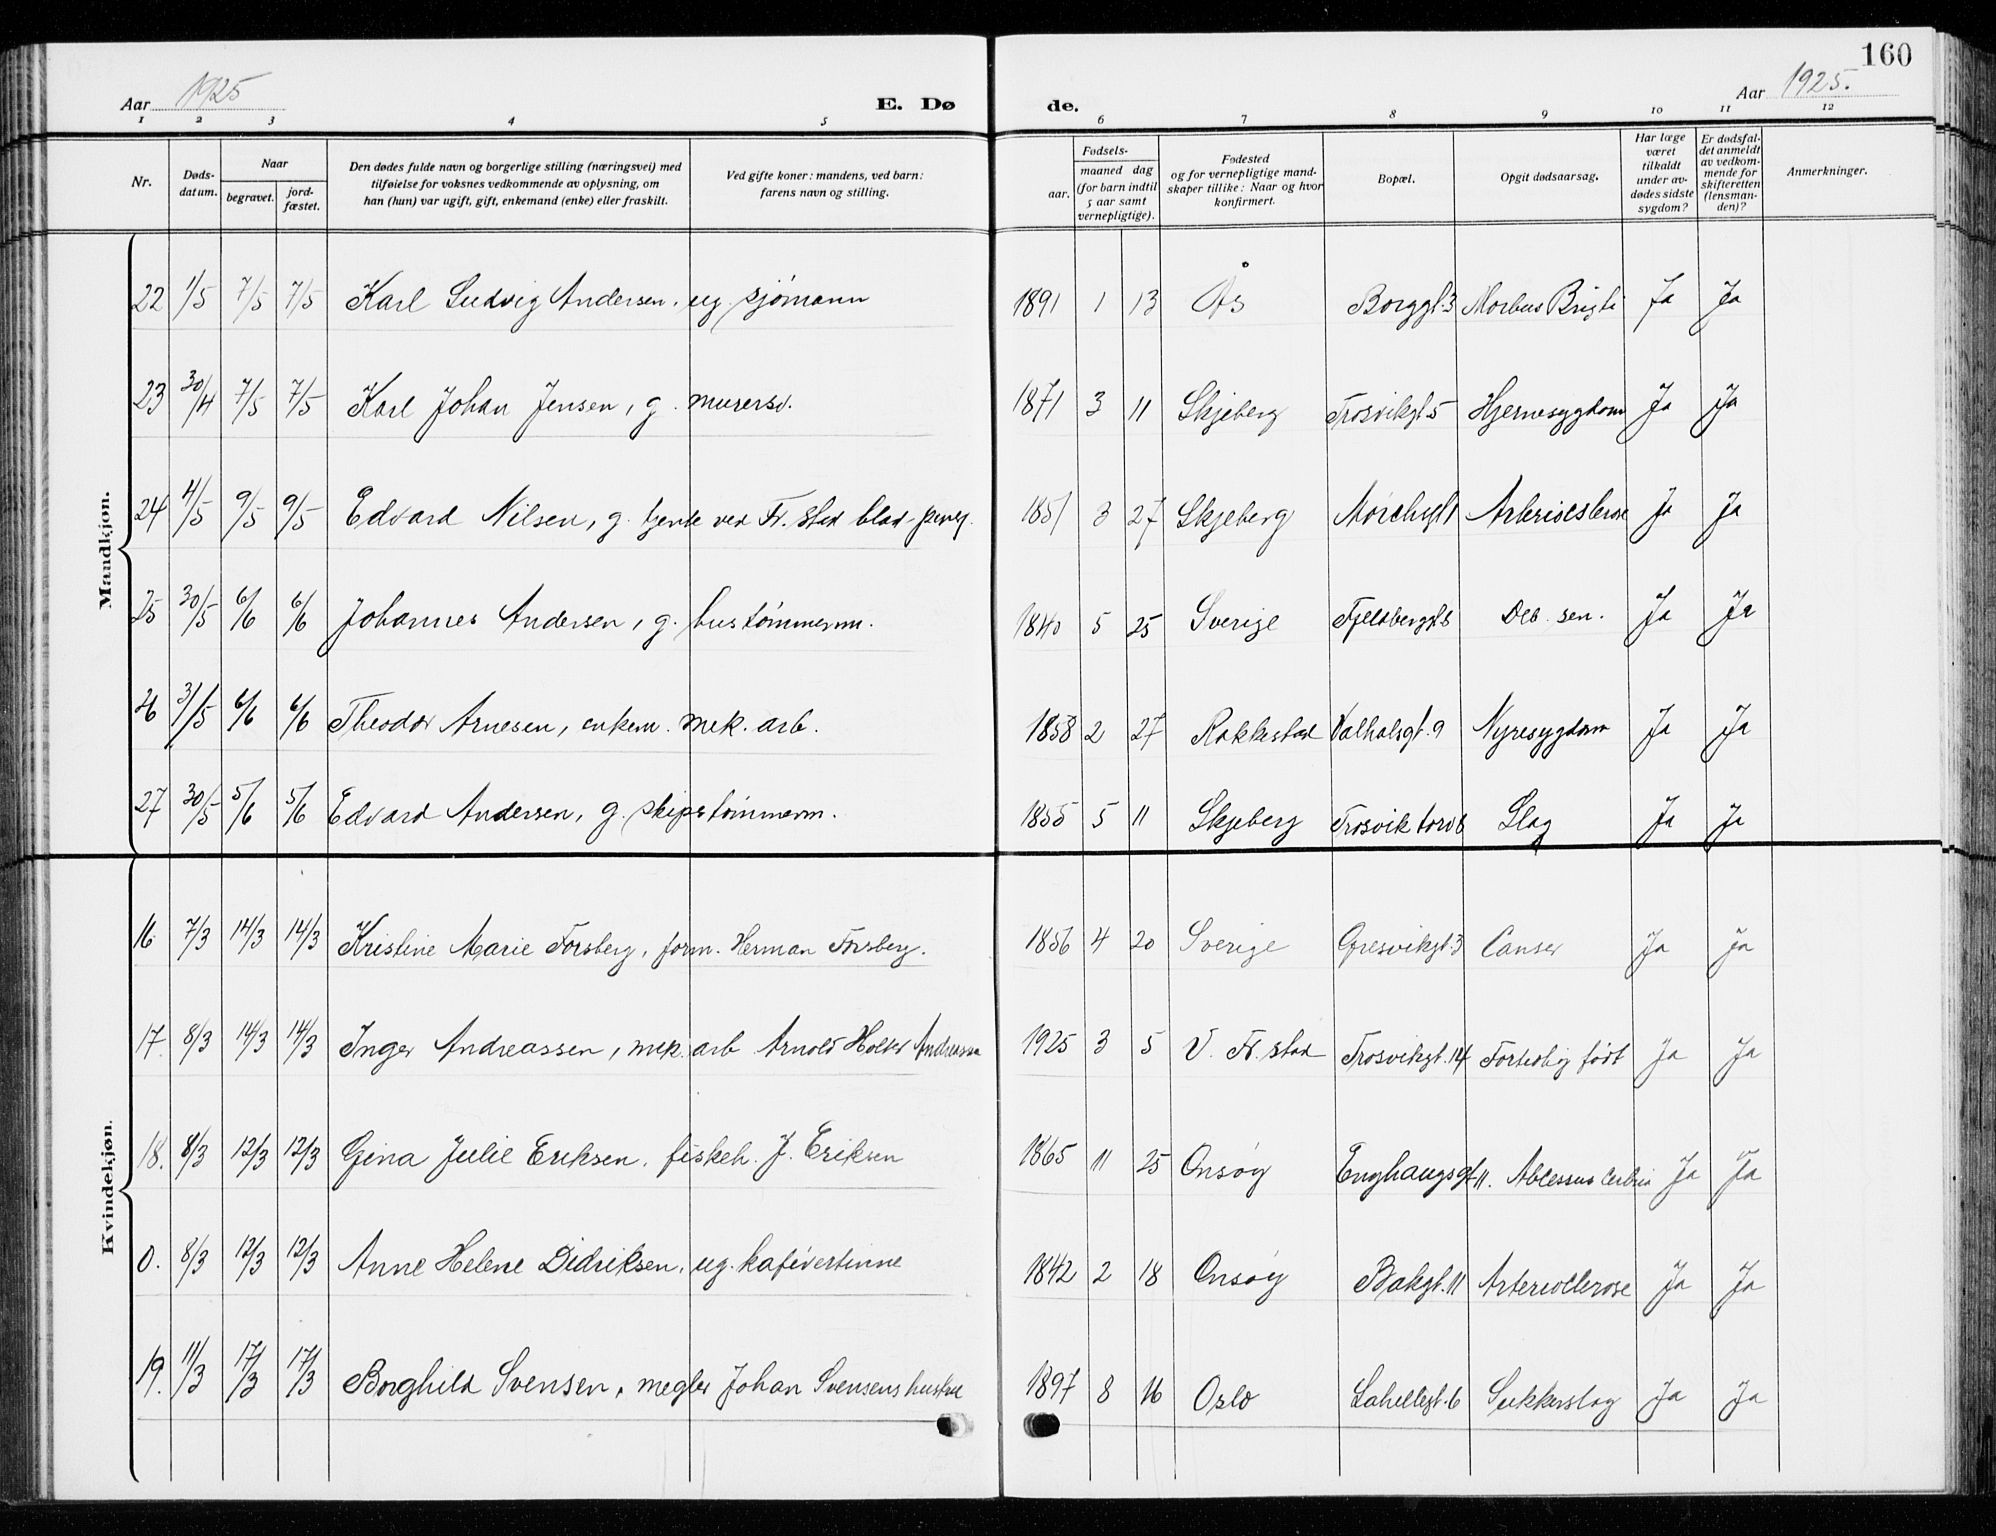 160
Aar 1925 E. Dø de. Aar 1925.
1 2 3 4 5 6 7 8 9 10 11 12
Nr. Døds-datum. Naar begravet. jord-fæstet. Den dødes fulde navn og borgerlige stilling (næringsvei) med tilføielse for voksnes vedkommende av oplysning, om han (hun) var ugift, gift, enkemand (enke) eller fraskilt. Ved gifte koner: mandens, ved barn: farens navn og stilling. Fødsels- aar. maaned dag (for barn indtil 5 aar samt vernepligtige). Fødested og for vernepligtige mand-skaper tillike: Naar og hvor konfirmert. Bopæl. Opgit dødsaarsag. Har læge været tilkaldt under av-dødes sidste sygdom? Er dødsfal-det anmeldt av vedkom-mende for skifteretten (lensman-den)? Anmerkninger.
Mandkjøn.
22 1/5 7/5 7/5 Karl Ludvig Andersen, ug. sjømann 1891 1 13 Ås Borggt. 3 Morbus Brigti Ja Ja
23 30/4 7/5 7/5 Karl Johan Jensen, g. murersv. 1871 3 11 Skjeberg Trosvikgt 5 Hjernesygdom Ja Ja
24 4/5 9/5 9/5 Edvard Nilsen, g. ved Fr. stad blad 1851 3 27 Skjeberg Ja Ja
25 30/5 6/6 6/6 Johannes Andersen, g. hustømmerm. 1840 5 25 Sverige Deb. sen. Ja Ja
26 31/5 6/6 6/6 Theodor Arnesen, enkem. mek. arb. 1858 2 27 Rakkestad Valhalsgt. 9 Nyresygdom Ja Ja
27 30/5 5/6 5/6 Edvard Andersen, g. skipstømmerm. 1855 5 11 Skjeberg Trosvik torv 6 Slag Ja Ja
Kvindekjøn.
16 7/3 14/3 14/3 Kristine Marie Forsberg, form. Herman Forsberg. 1856 4 20 Sverige Gresvikgt. 3 Canser Ja Ja
17. 8/3 14/3 14/3 Inger Andreassen, mek. arb Arnold Holter Andreassen 1925 3 5 V. Fr. stad Trosvikgt. 14 Fortidlig født Ja Ja
18. 8/3 12/3 12/3 Gina Julie Eriksen, fiskeh. J. Eriksen 1865 11 25 Onsøy Enghaugsgt 11. Ja Ja
0. 8/3 12/3 12/3 Anne Helene Didriksen, ug. kafévertinne 1842 2 18 Onsøy Bakgt. 11 Arterioclerose Ja Ja
19. 11/3 17/3 17/3 Borghild Svensen, megler Johan Svensens hustru 1897 8 16 Oslo Lahellegt. 6 Sukkerslag Ja Ja